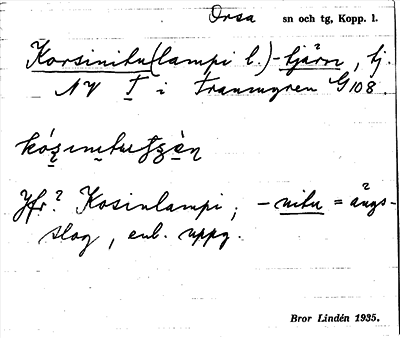 Orsa sn och tg, Kopp. l.
Korsinitu (lampi l.) -tjärn, tj.
NV T i Tranungren G108.
Jfr? Kosinlampi; -nitu = ängs-
slog, enl. uppg.
Bror Lindén 1935.